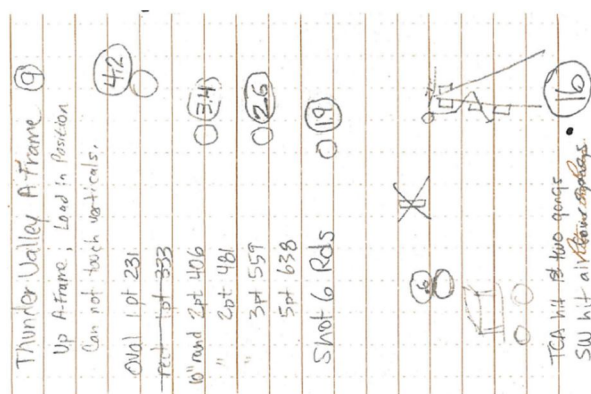 Thunder Valley A-Frame 9
Up A-frame; Load in Position
Can not touch verticals.
Oval 1pt 231 4.2
rect 1pt 333
10" round 2pt 406 3.4
" 2pt 481
" 3pt 559 2.6
5pt 638
Shot 6 Rds 1.9
16
TCA hit 1st two gongs
SW hit all